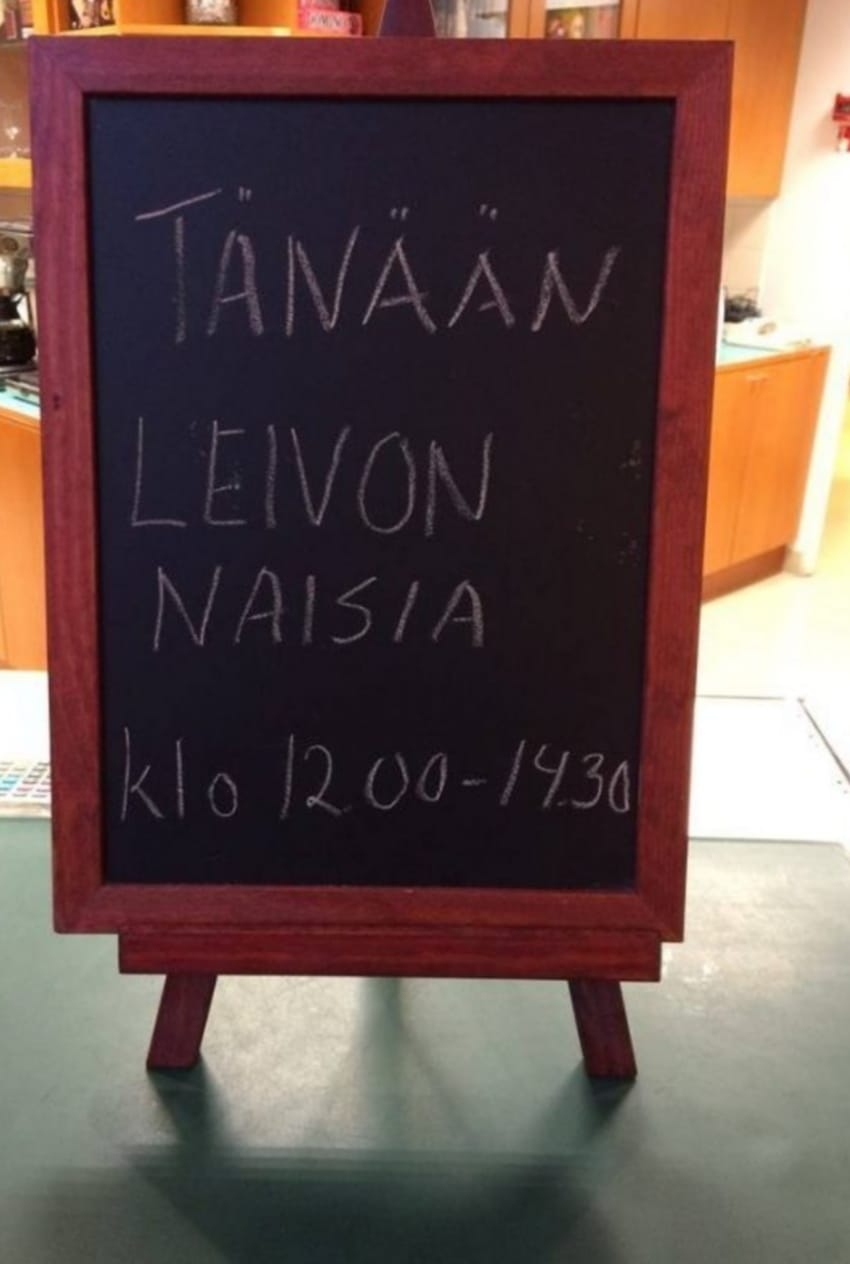 TÄNÄÄN
LEIVON
NAISIA
klo 12.00-14.30